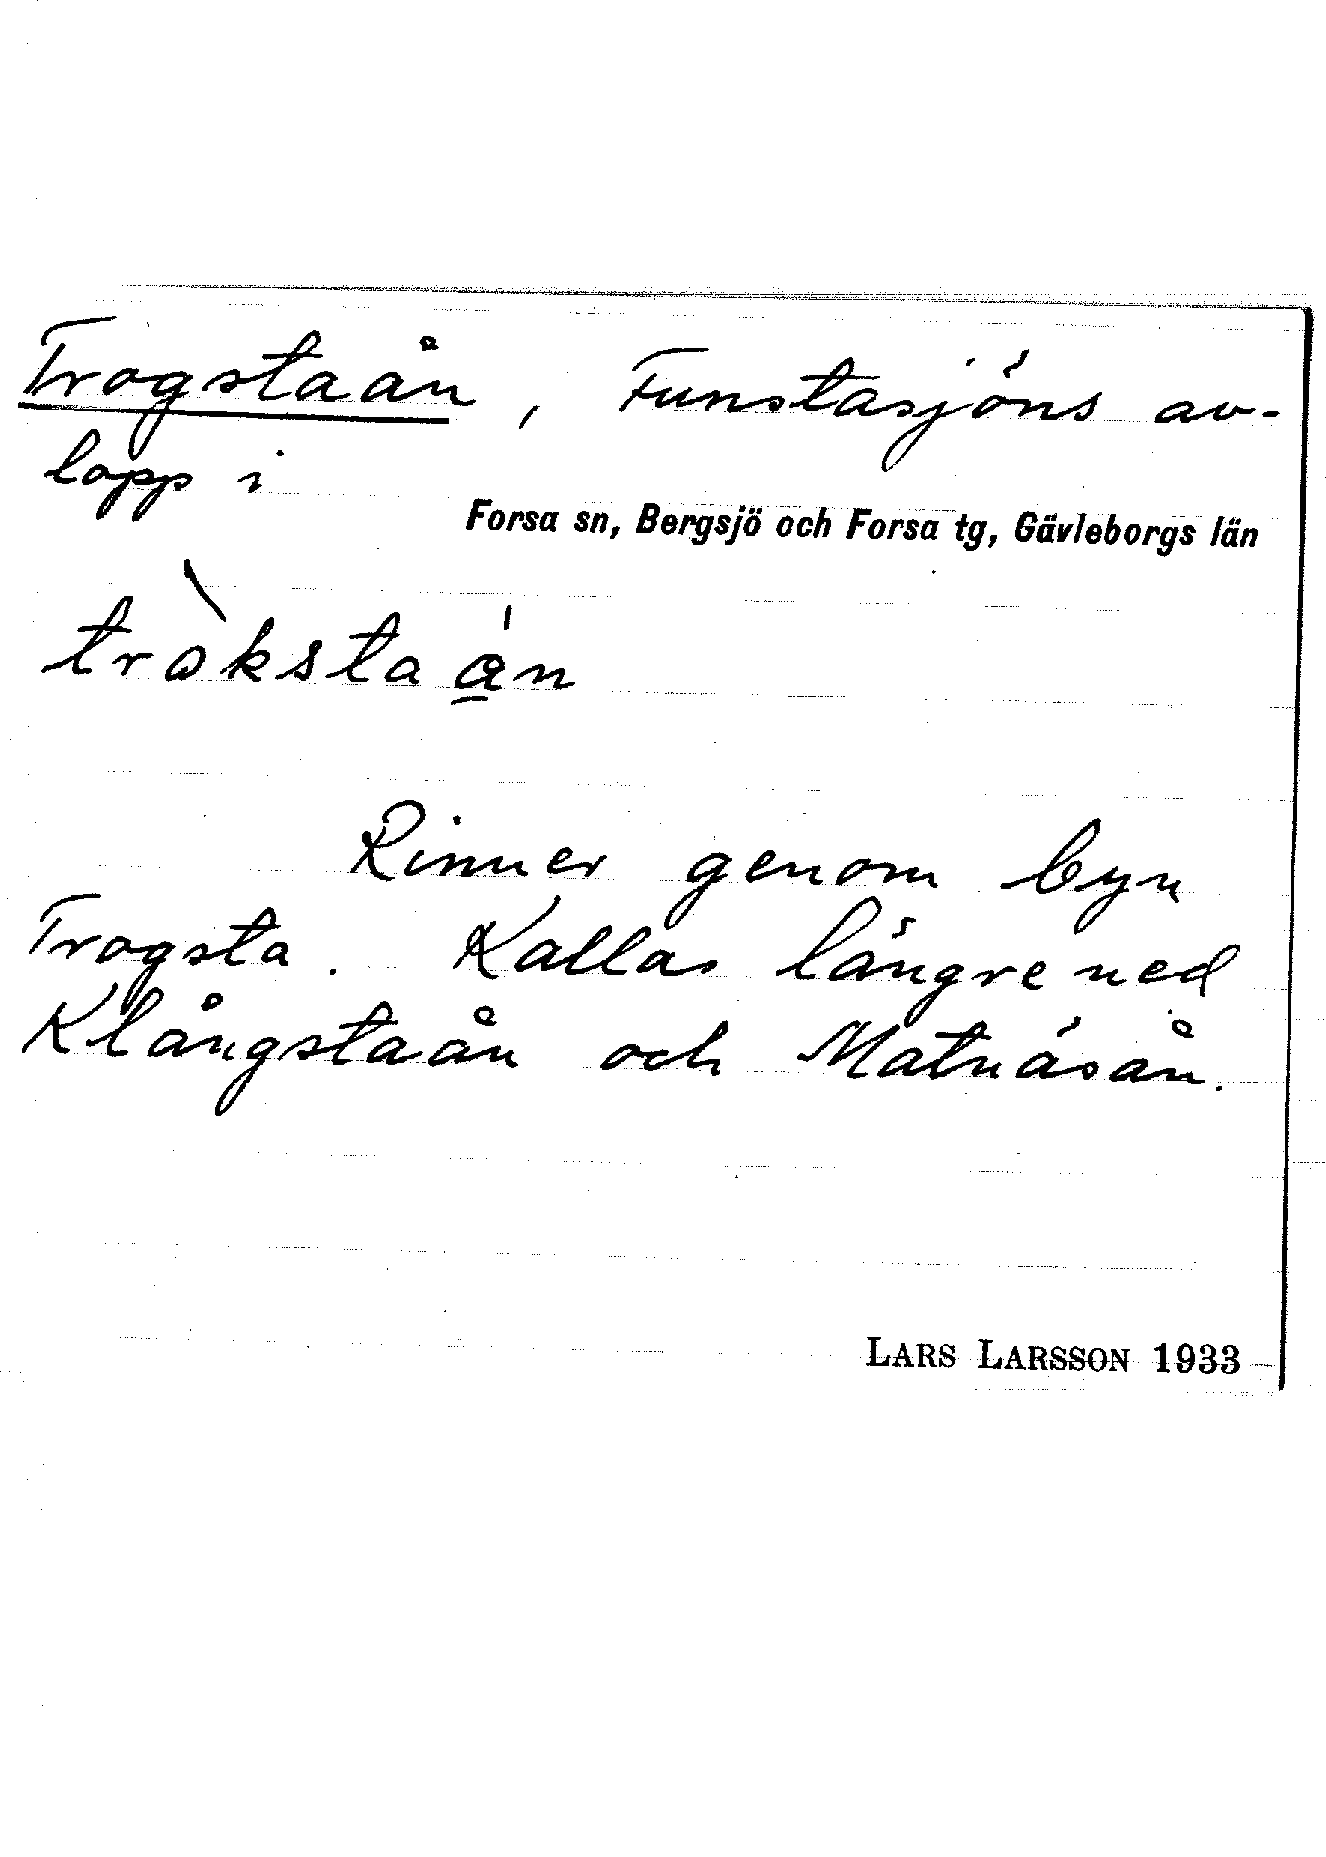 Trogstaån, Funstasjöns av-
lopp i
Forsa sn, Bergsjö och Forsa tg, Gävleborgs län
tròksta á̲n
Rinner genom byn
Trogsta. Kallas längre ned
Klångstaån och Matnäsån.
LARS LARSSON 1933